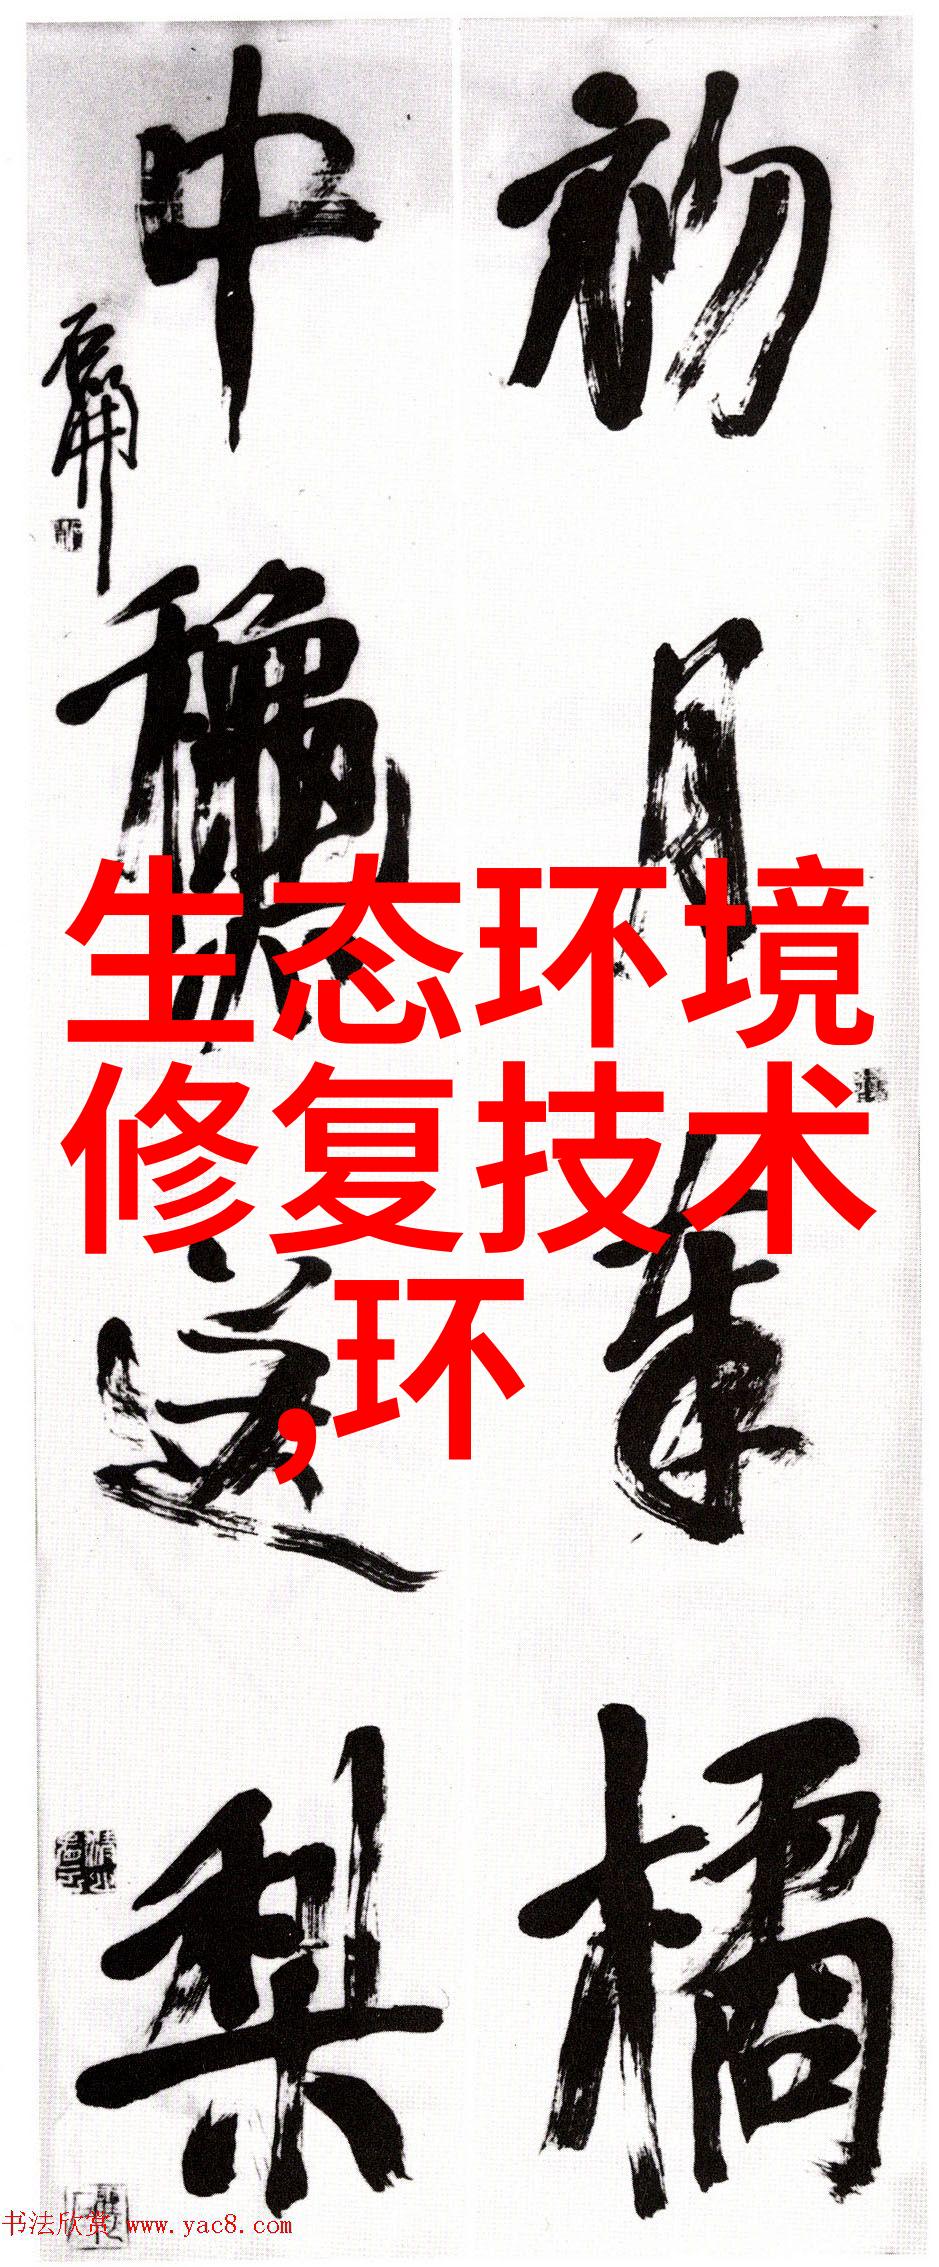 初月奉橘
中龝送梨
石開
生态环境
修复技术
,环
书法欣赏 www.yac8.com